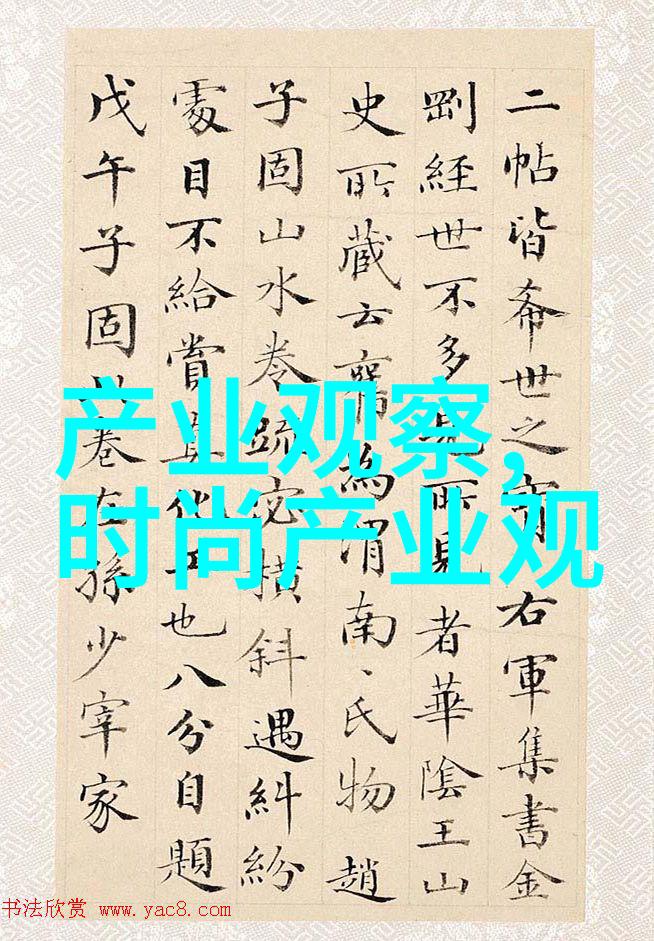 二帖皆希世之右軍集書金
剛經世不多見所見者華陰王山
史所藏云為渭南氏物趙
子固山水卷疏宓横斜遇糾紛
處目不給賞真化工也八分自題
戊午子固此卷在孫少宰家
产业观察,
时尚产业观
书法欣赏 www.yac8.com